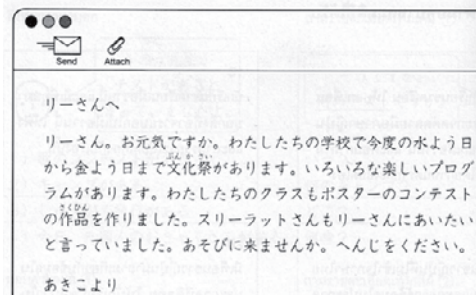 Send
Attach
リーさんへ
リーさん。お元気ですか。わたしたちの学校で今度の水よう日
から金よう日まで文化祭があります。いろいろな楽しいプログ
ラムがあります。わたしたちのクラスもポスターのコンテスト
の作品を作りました。スリーラットさんもリーさんにあいたい
と言っていました。あそびに来ませんか。へんじをください。
あきこより